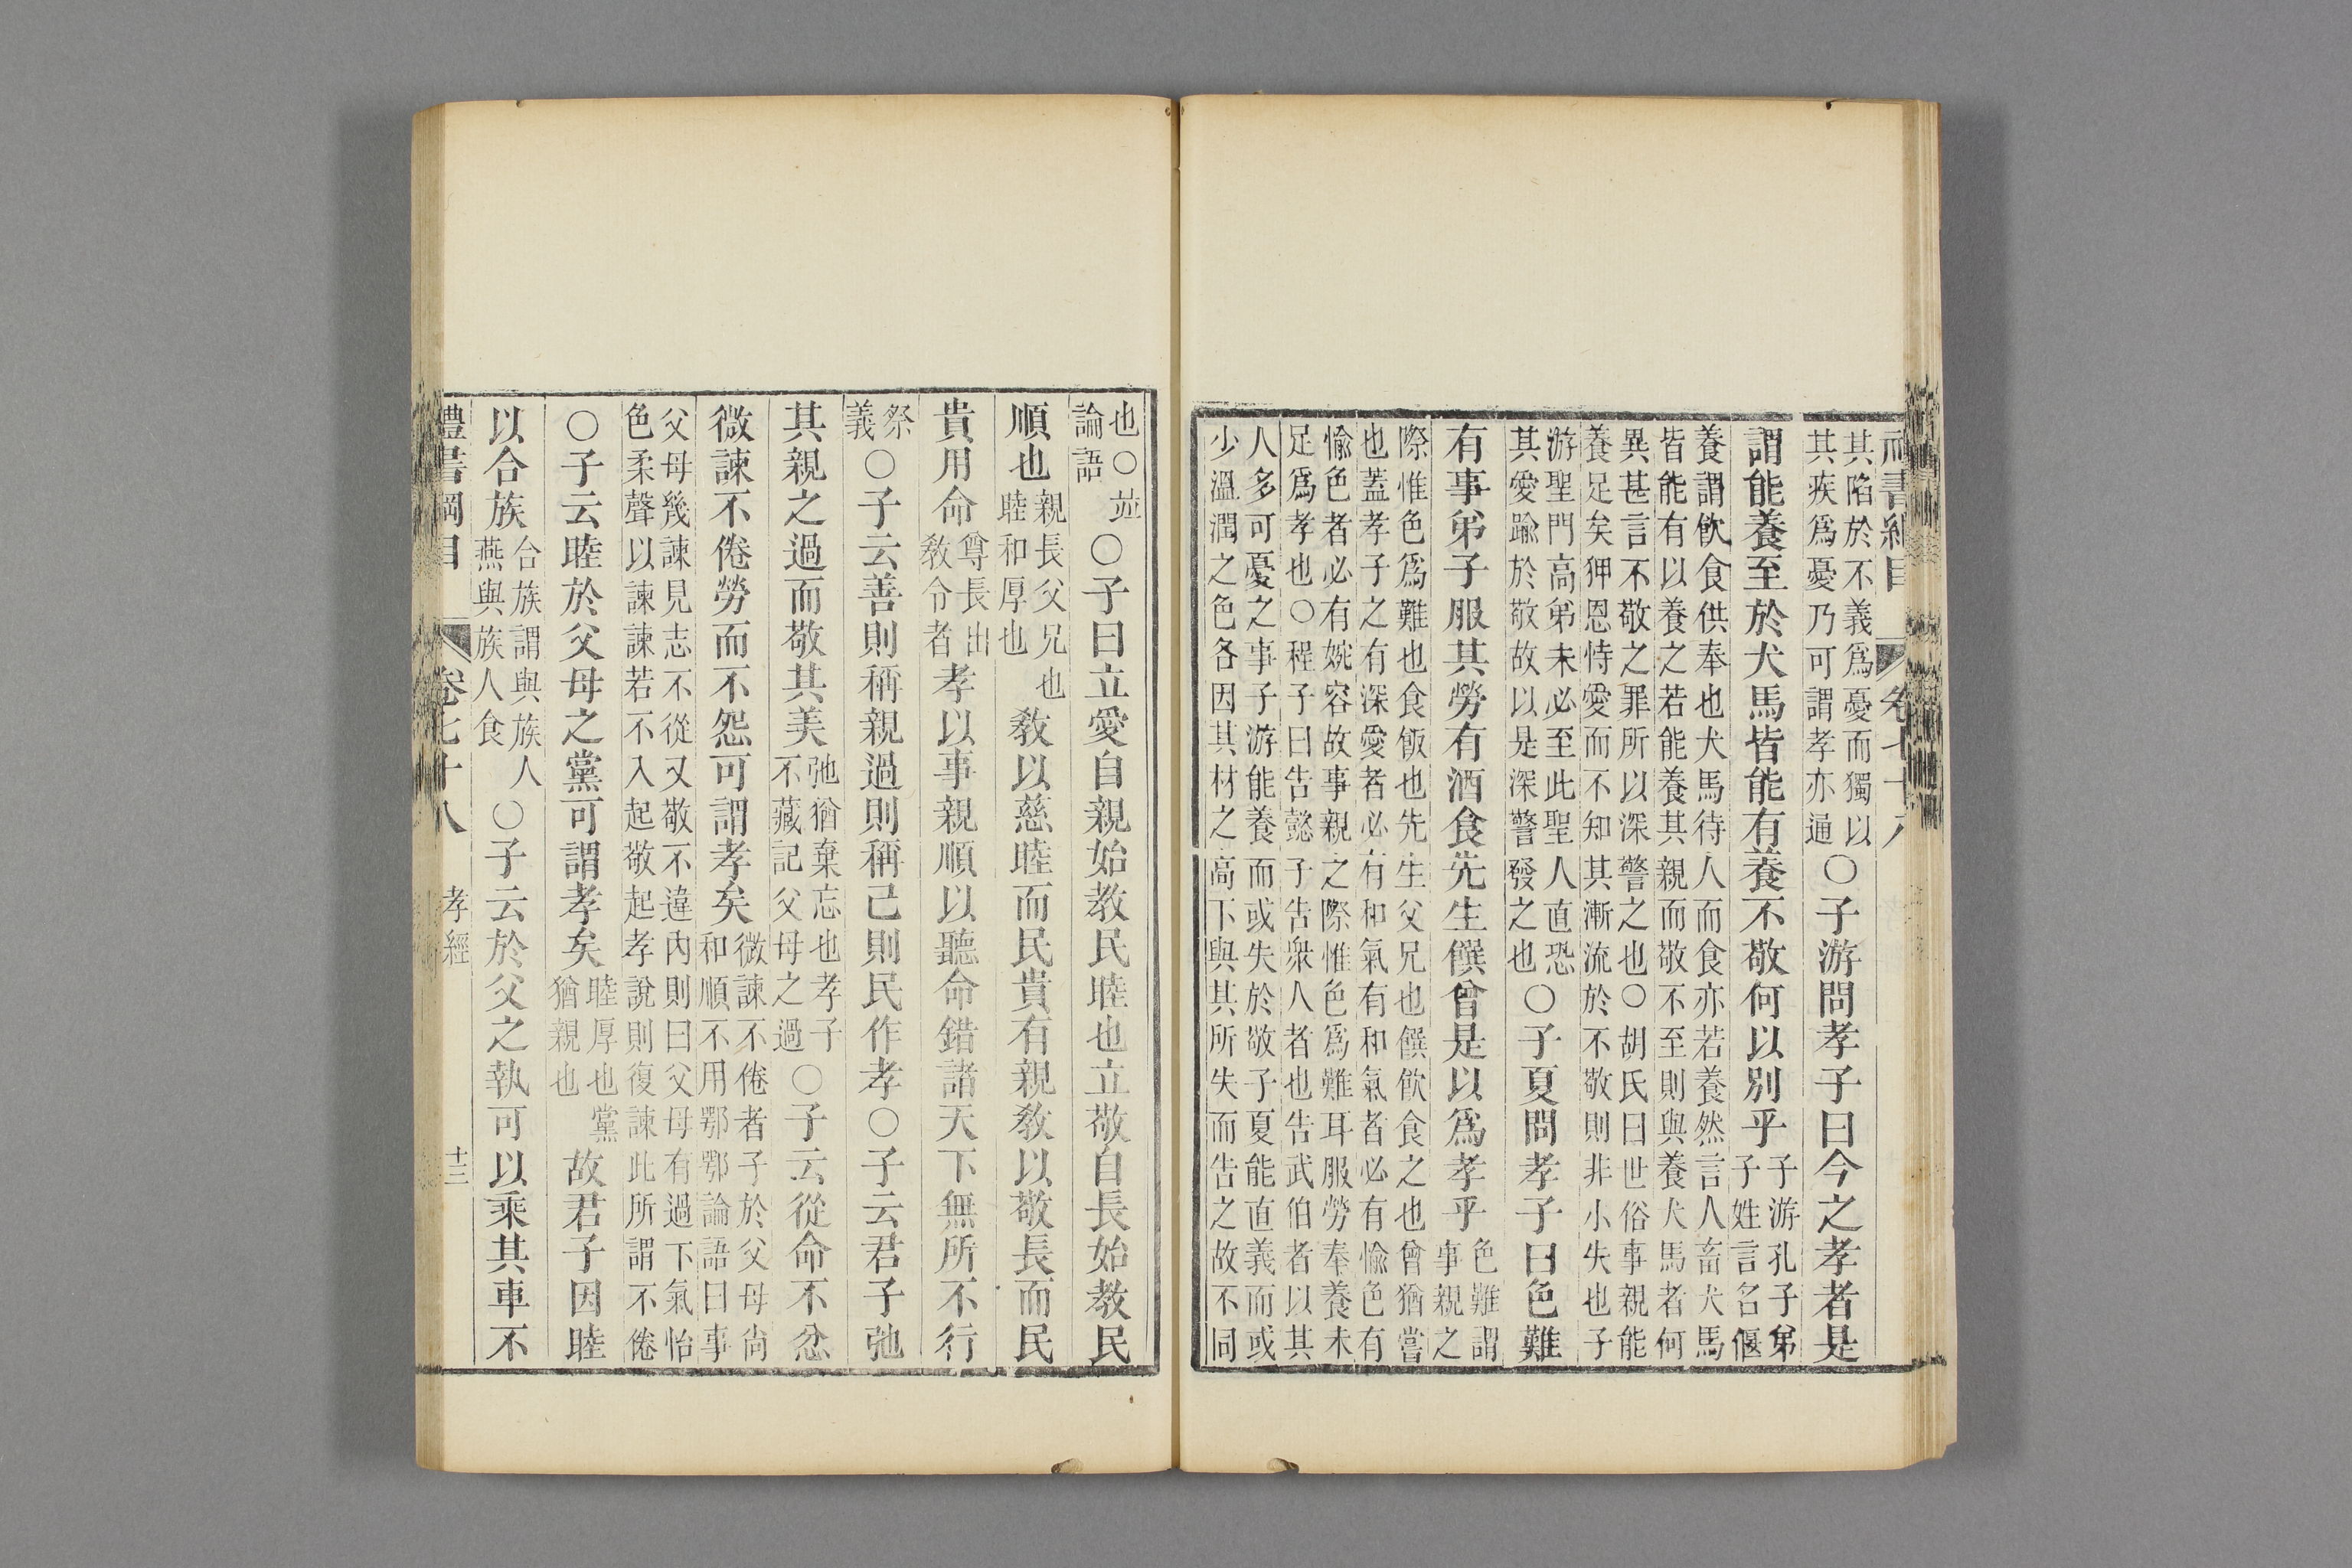 禮書綱目 卷七十八
其陷於不義爲憂而獨以其疾爲憂乃可謂孝亦通〇子游問孝子曰今之孝者是
謂能養至於犬馬皆能有養不敬何以別乎子游孔子弟子姓言名偃
養謂飮食供奉也犬馬待人而食亦若養然言人畜犬馬
皆能有以養之若能養其親而敬不至則與養犬馬者何
異甚言不敬之罪所以深警之也〇胡氏曰世俗事親能
養足矣狎恩恃愛而不知其漸流於不敬則非小失也子
游聖門高弟未必至此聖人直恐其愛踰於敬故以是深警發之也〇子夏問孝子曰色難
有事弟子服其勞有酒食先生饌曾是以爲孝乎色難謂事親之
際惟色爲難也食飯也先生父兄也饌飮食之也曾猶嘗
也蓋孝子之有深愛者必有和氣有和氣者必有愉色有
愉色者必有婉容故事親之際惟色爲難耳服勞奉養未
足爲孝也〇程子曰告懿子告衆人者也告武伯者以其
人多可憂之事子游能養而或失於敬子夏能直義而或
少溫潤之色各因其材之高下與其所失而告之故不同
也〇並論語〇子曰立愛自親始教民睦也立敬自長始教民
順也親長父兄也睦和厚也敎以慈睦而民貴有親敎以敬長而民
貴用命尊長出敎令者孝以事親順以聽命錯諸天下無所不行
祭義〇子云善則稱親過則稱己則民作孝〇子云君子弛
其親之過而敬其美弛猶棄忘也孝子不藏記父母之過〇子云從命不忿
微諫不倦勞而不怨可謂孝矣微諫不倦者子於父母尙和順不用鄂鄂論語曰事
父母幾諫見志不從又敬不違內則曰父母有過下氣怡
色柔聲以諫諫若不入起敬起孝說則復諫此所謂不倦
〇子云睦於父母之黨可謂孝矣睦厚也黨猶親也故君子因睦
以合族合族謂與族人燕與族人食〇子云於父之執可以乘其車不
禮書綱目 卷七十八 孝經 十三